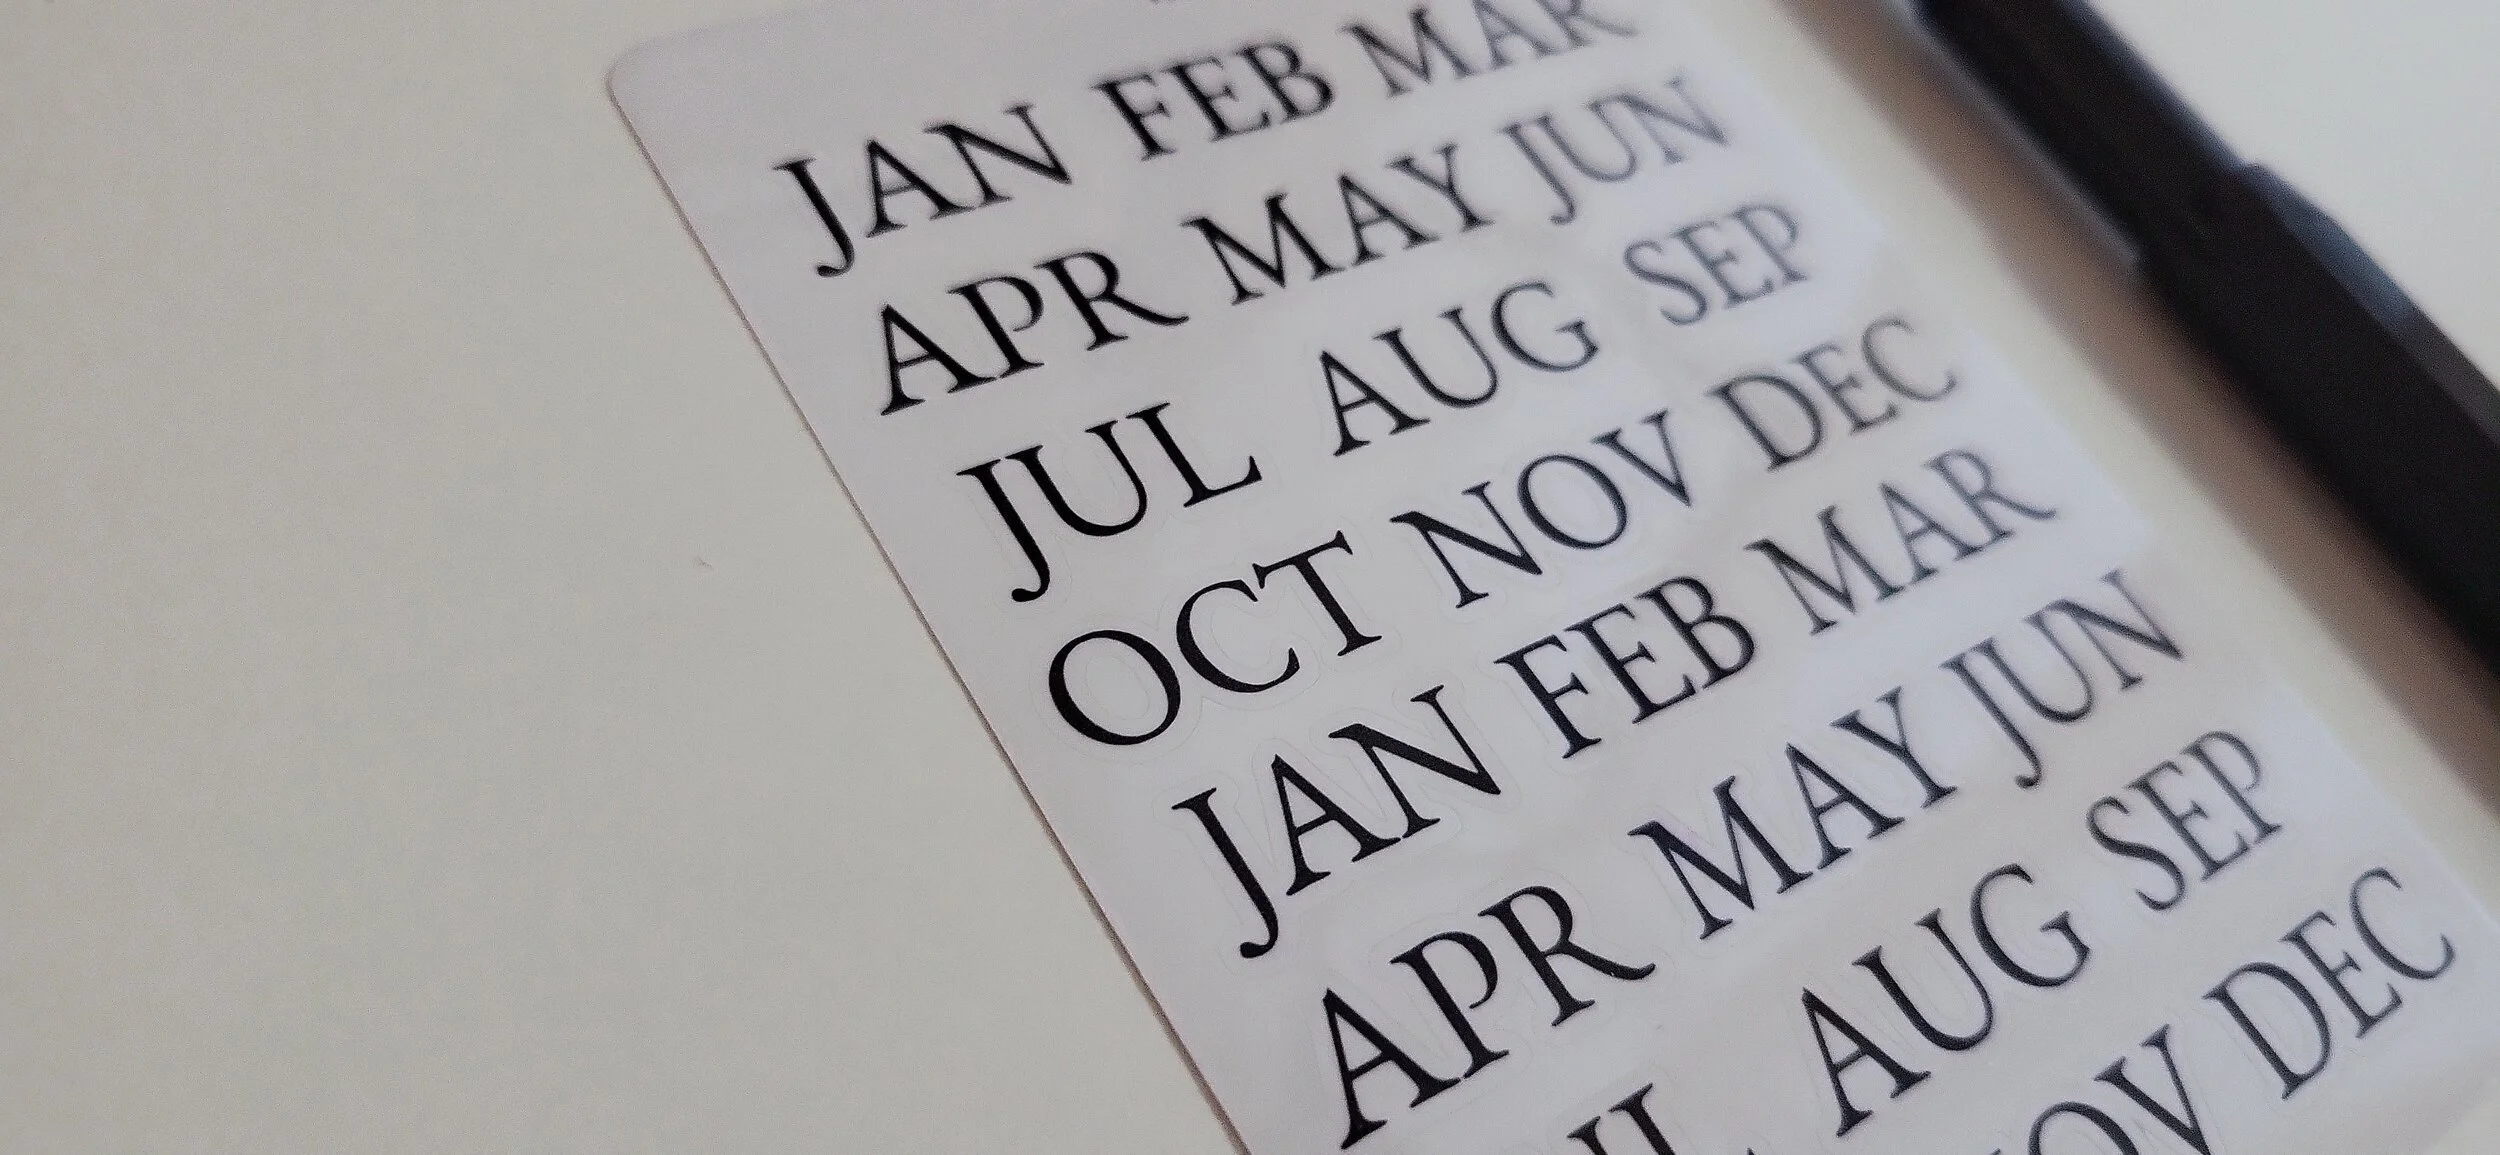 JAN FEB MAR
APR MAY JUN
JUL AUG SEP
OCT NOV DEC
JAN FEB MAR
APR MAY JUN
AUG SEP
DEC